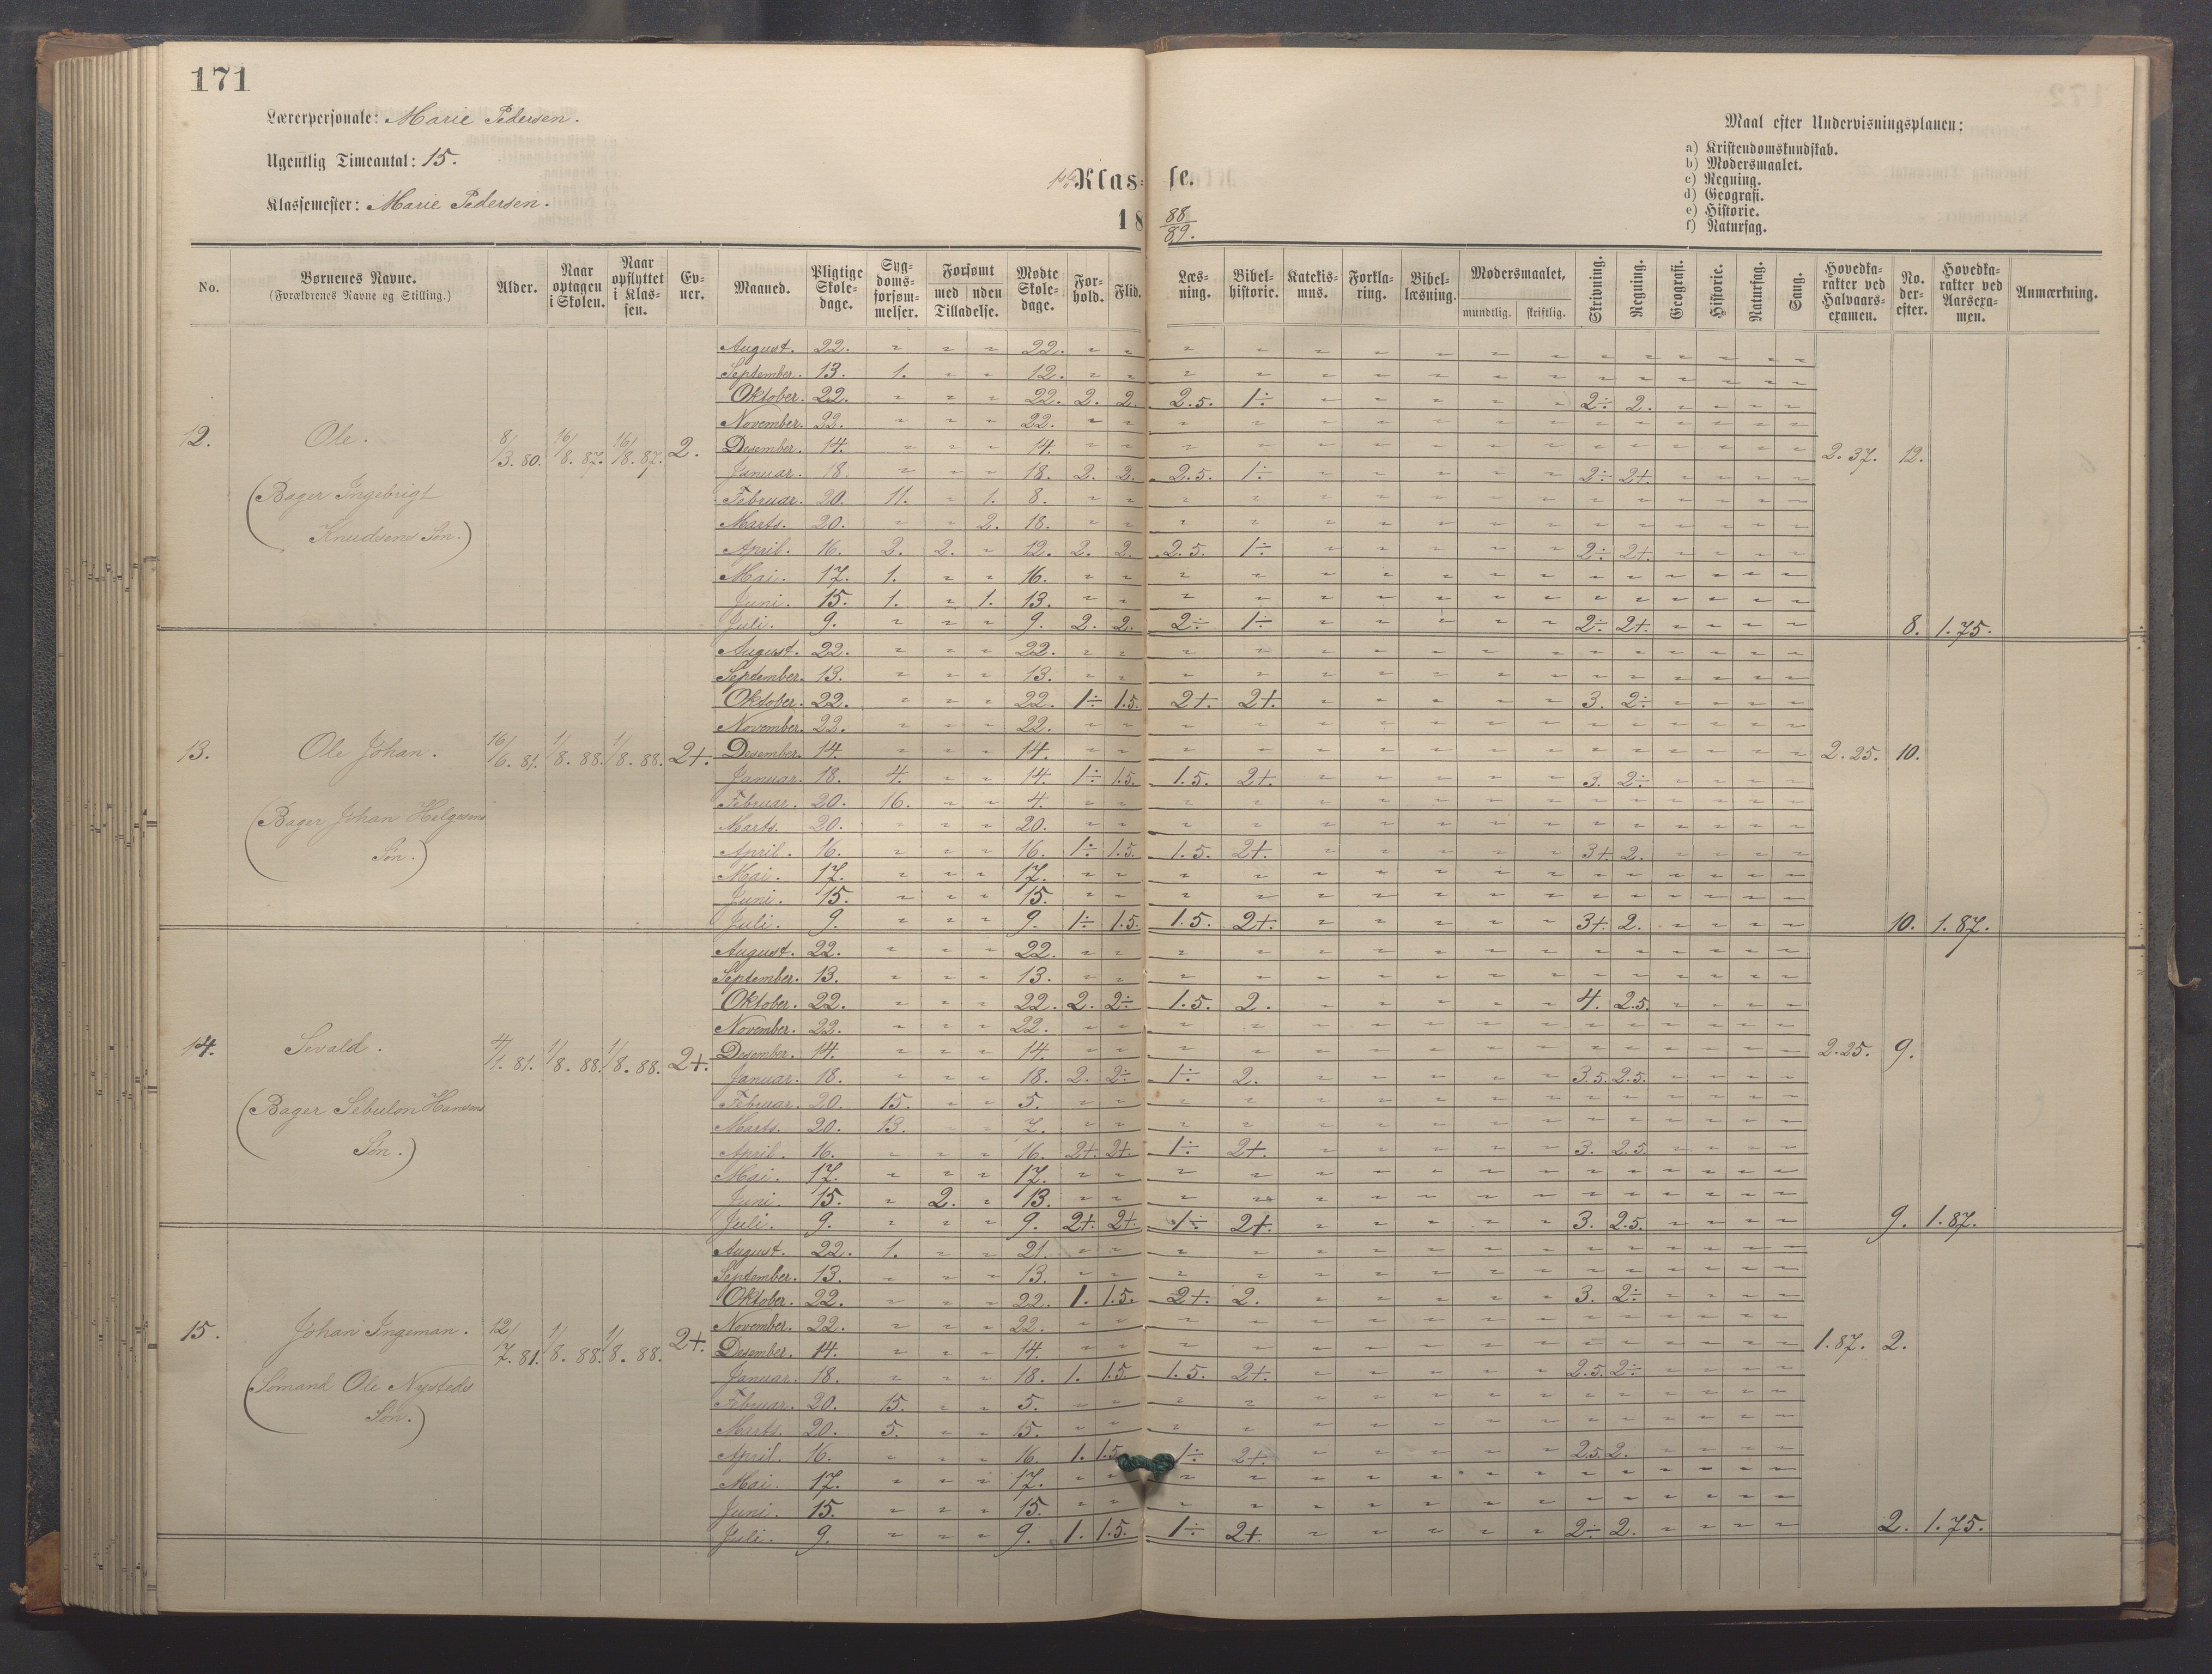 171
Lærerpersonale: Marie Pedersen.
Ugentlig Timeantal: 15.
Klassemester: Marie Pedersen.
1ste Klasse.
18 88/89.
Maal efter Undervisningsplanen:
a) Kristendomskundskab.
b) Modersmaalet.
c) Regning.
d) Geografi.
e) Historie.
f) Naturfag.
No. Børnenes Navne. (Forældrenes Navne og Stilling.) Alder. Naar optagen i Skolen. Naar opflyttet i Klassen. Evner. Maaned. Pligtige Skoledage. Sygdomsforsømmelser. Forsømt med nden Tilladelse. Mødte Skoledage. Forhold. Flid. Læsning. Bibelhistorie. Katekismus. Forklaring. Bibellæsning. Modersmaalet, mundtlig. skriftlig. Skrivning. Regning. Geografi. Historie. Naturfag. Sang. Hovedkarakter ved Halvaarsexamen. No. derefter. Hovedkarakter ved Aarsexamen. Anmærkning.
12. Ole. (Bager Ingebrigt Knudsens Søn.) 8/3. 80. 16/8. 87. 16/8. 87. 2.
August. 22. " " " 22. " " " " " " " " " " " " " " "
September. 13. 1. " " 12. " " " " " " " " " " " " " " "
Oktober. 22. " " " 22. 2. 2. 2.5. 1÷ " " " " " 2÷ 2. " " " "
November. 22. " " " 22. " " " " " " " " " " " " " " "
Desember. 14. " " " 14. " " " " " " " " " " " " " " " 2.37. 12.
Januar. 18. " " " 18. 2. 2. 2.5. 1÷ " " " " " 2÷ 2+. " " " "
Februar. 20. 11. " 1. 8. " " " " " " " " " " " " " " "
Marts. 20. " " 2. 18. " " " " " " " " " " " " " " "
April. 16. 2. 2. " 12. 2. 2. 2.5. 1÷ " " " " " 2÷ 2+. " " " "
Mai. 17. 1. " " 16. " " " " " " " " " " " " " " "
Juni. 15. 1. " 1. 13. " " " " " " " " " " " " " " "
Juli. 9. " " " 9. 2. 2. 2÷ 1÷ " " " " " 2÷ 2+. " " " " 8. 1.75.
13. Ole Johan. (Bager Johan Helgesens Søn.) 16/6. 81. 1/8. 88. 1/8. 88. 2+.
August. 22. " " " 22. " " " " " " " " " " " " " " "
September. 13. " " " 13. " " " " " " " " " " " " " " "
Oktober. 22. " " " 22. 1÷ 1.5. 2+. 2+. " " " " " 3. 2÷ " " " "
November. 22. " " " 22. " " " " " " " " " " " " " " "
Desember. 14. " " " 14. " " " " " " " " " " " " " " " 2.25. 10.
Januar. 18. 4. " " 14. 1÷ 1.5. 1.5. 2+. " " " " " 3. 2÷ " " " "
Februar. 20. 16. " " 4. " " " " " " " " " " " " " " "
Marts. 20. " " " 20. " " " " " " " " " " " " " " "
April. 16. " " " 16. 1÷ 1.5. 1.5. 2+. " " " " " 3+. 2. " " " "
Mai. 17. " " " 17. " " " " " " " " " " " " " " "
Juni. 15. " " " 15. " " " " " " " " " " " " " " "
Juli. 9. " " " 9. 1÷ 1.5. 1.5. 2+. " " " " " 3+. 2. " " " " 10. 1.87.
14. Sevald. (Bager Sebulon Hansens Søn.) 4/1. 81. 1/8. 88. 1/8. 88. 2+.
August. 22. " " " 22. " " " " " " " " " " " " " " "
September. 13. " " " 13. " " " " " " " " " " " " " " "
Oktober. 22. " " " 22. 2. 2÷ 1.5. 2. " " " " " 4. 2.5. " " " "
November. 22. " " " 22. " " " " " " " " " " " " " " "
Desember. 14. " " " 14. " " " " " " " " " " " " " " " 2.25. 9.
Januar. 18. " " " 18. 2. 2÷ 1÷ 2. " " " " " 3.5. 2.5. " " " "
Februar. 20. 15. " " 5. " " " " " " " " " " " " " " "
Marts. 20. 13. " " 7. " " " " " " " " " " " " " " "
April. 16. " " " 16. 2+. 2+. 1÷ 2+. " " " " " 3. 2.5. " " " "
Mai. 17. " " " 17. " " " " " " " " " " " " " " "
Juni. 15. " 2. " 13. " " " " " " " " " " " " " " "
Juli. 9. " " " 9. 2+. 2+. 1÷ 2+. " " " " " 3. 2.5. " " " " 9. 1.87.
15. Johan Ingeman. (Sømand Ole Nysteds Søn.) 12/7. 81. 1/8. 88. 1/8. 88. 2+.
August. 22. 1. " " 21. " " " " " " " " " " " " " " "
September. 13. " " " 13. " " " " " " " " " " " " " " "
Oktober. 22. " " " 22. 1. 1.5. 2+. 2. " " " " " 3. 2÷ " " " "
November. 22. " " " 22. " " " " " " " " " " " " " " "
Desember. 14. " " " 14. " " " " " " " " " " " " " " " 1.87. 2.
Januar. 18. " " " 18. 1. 1.5. 1.5. 2+. " " " " " 2.5. 2÷ " " " "
Februar. 20. 15. " " 5. " " " " " " " " " " " " " " "
Marts. 20. 5. " " 15. " " " " " " " " " " " " " " "
April. 16. " " " 16. 1. 1.5. 1÷ 2+. " " " " " 2.5. 2. " " " "
Mai. 17. " " " 17. " " " " " " " " " " " " " " "
Juni. 15. " " " 15. " " " " " " " " " " " " " " "
Juli. 9. " " " 9. 1. 1.5. 1÷ 2+. " " " " " 2÷ 2. " " " " 2. 1.75.